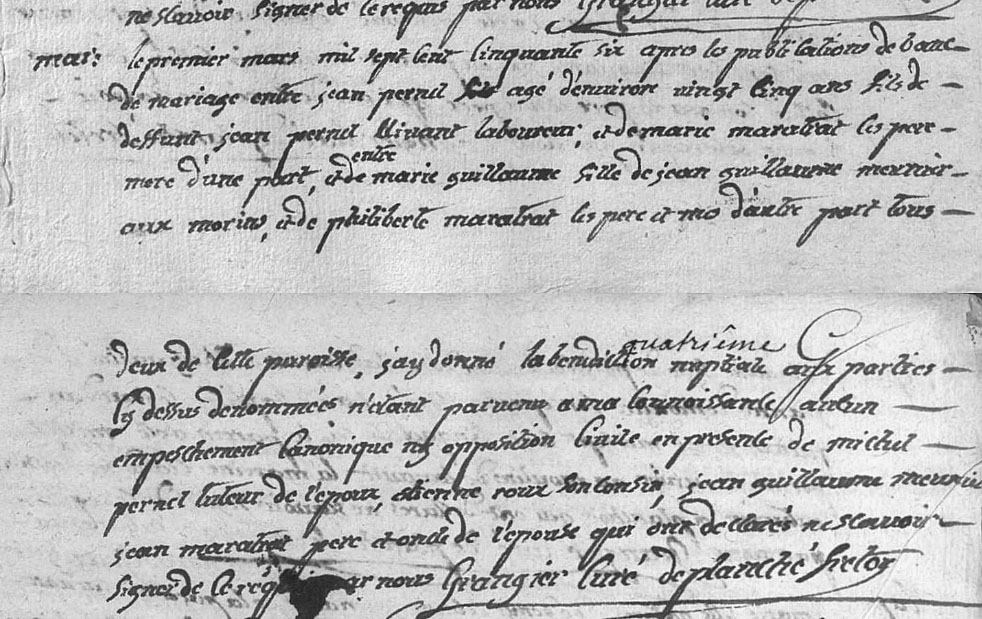 ne scavoir signer de ce requis par nous Grangier curé de
mar: le premier mars mil sept cent cinquante six apres les publications de banc
de mariage entre jean pernel agé d'environ vingt cinq ans fils de
deffunt jean pernel vivant laboureur, et de marie maratrat ses pere
mere d'une part, et entre de marie guillaume fille de jean guillaume meunier
aux morins, et de philiberte maratrat ses pere et mere d'autre part tous
deux de cette paroisse, j'ay donné la benediction nuptiale aux parties
quatrième
cy dessus denommées n'étant parvenu a ma connoissance aucun
empeschement canonique ny opposition civile en presence de michel
pernel tuteur de l'epoux, etienne roux son cousin, jean guillaume meunier
jean maratrat pere et oncle de l'epouse qui ont declarés ne scavoir
signer de ce req par nous Grangier curé de planché